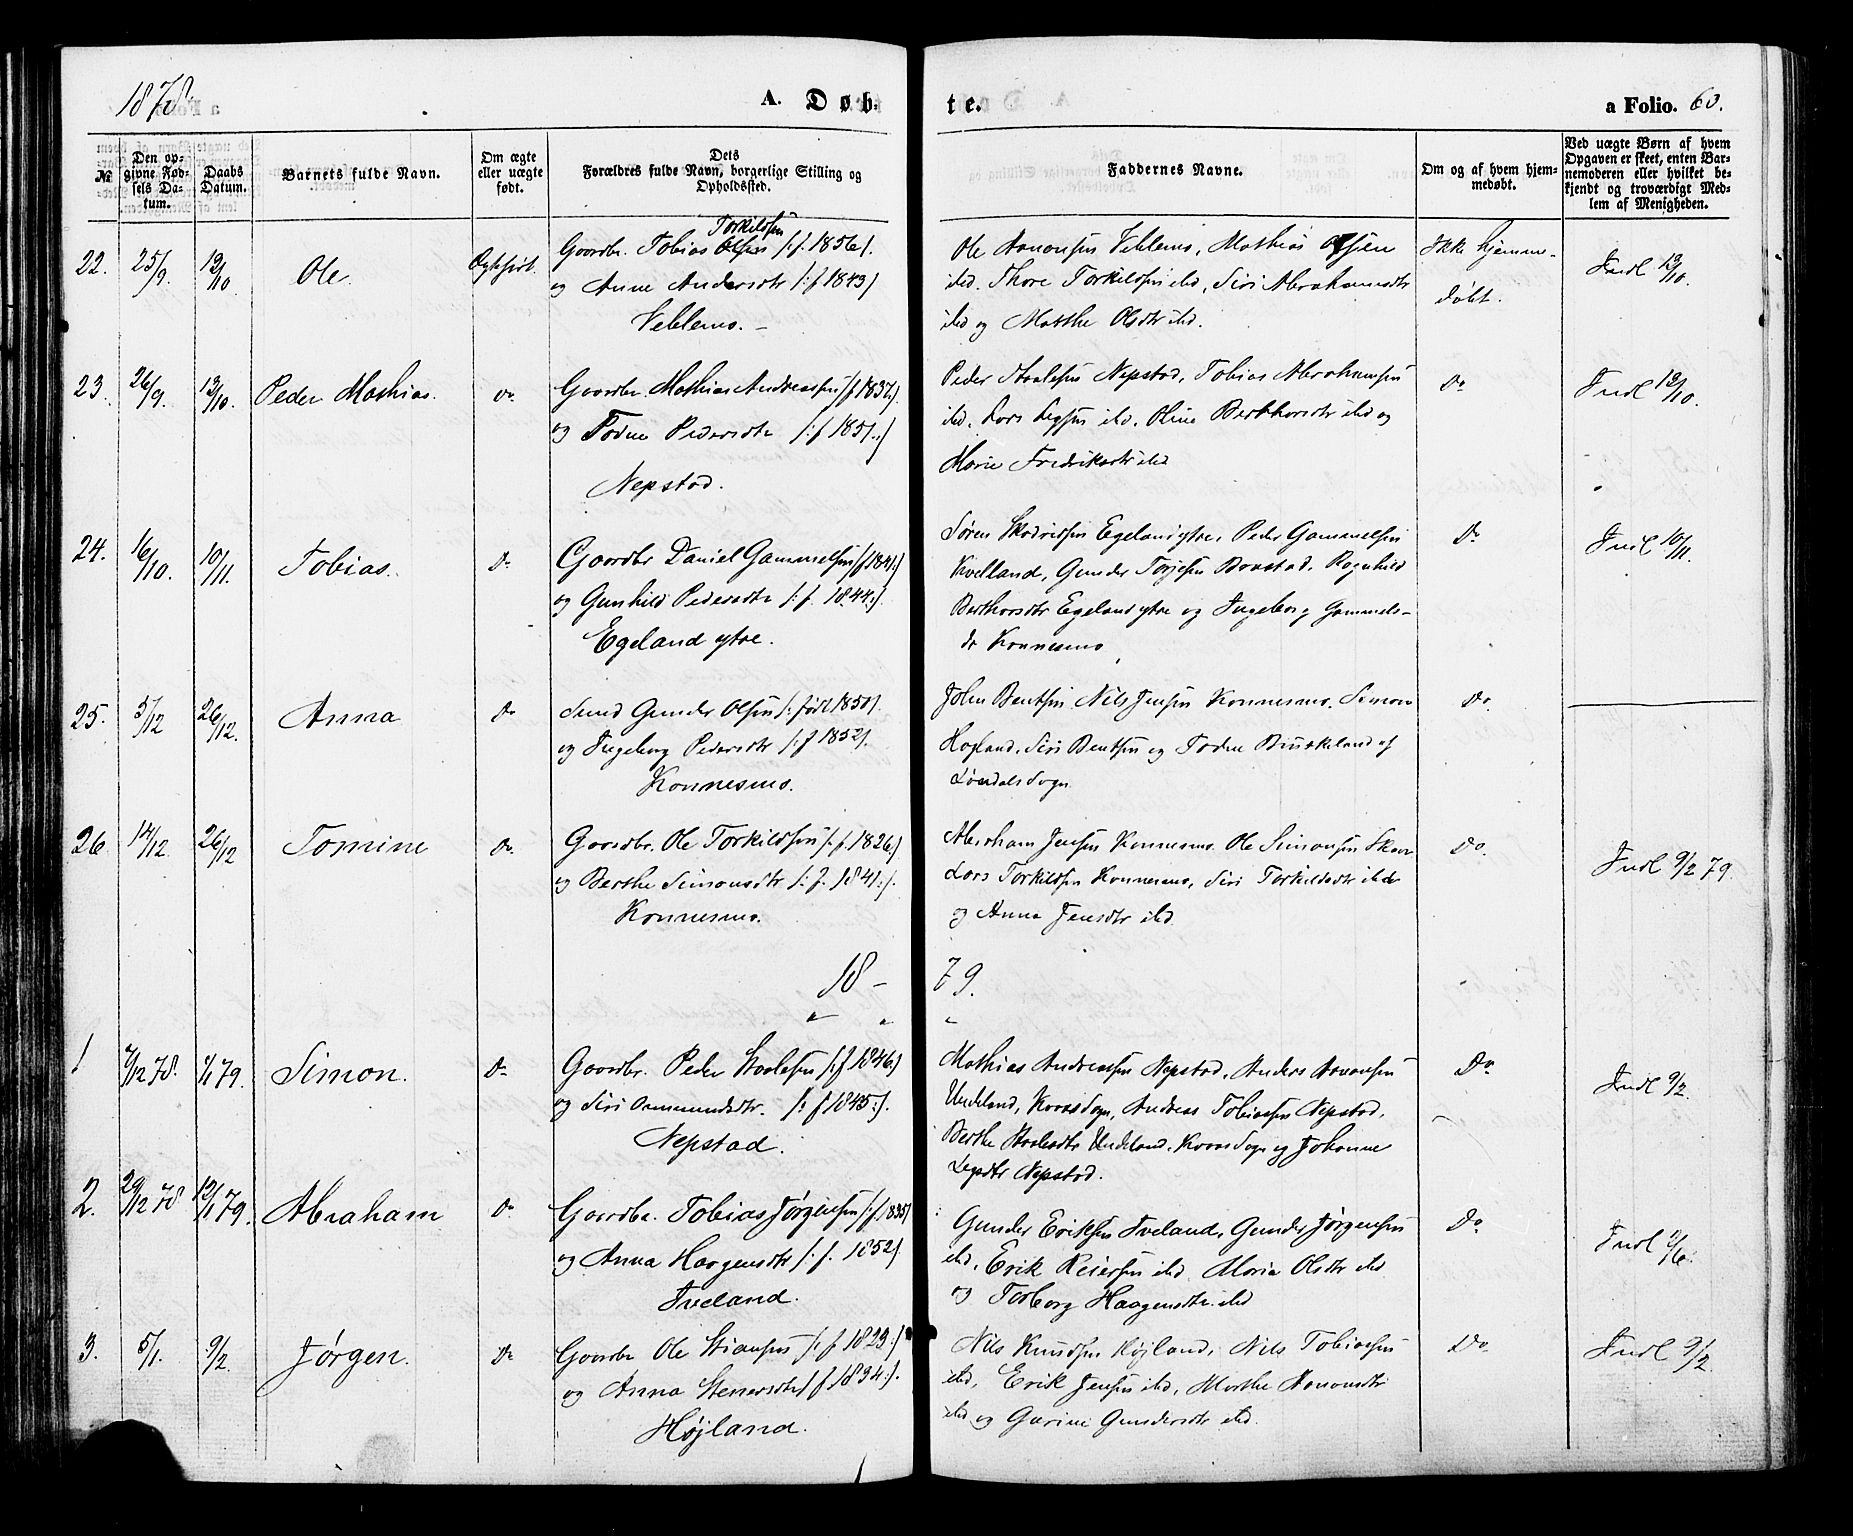 1878.
A. Døb-
te.
a Folio. 60.
№
Den op-
givne Fød-
sels Da-
tum.
Daabs
Datum.
Barnets fulde Navn.
Om ægte
eller uægte
født.
Dets
Forældres fulde Navn, borgerlige Stilling og
Opholdssted.
Faddernes Navne.
Om og af hvem hjem-
medøbt.
Ved uægte Børn af hvem
Opgaven er skeet, enten Bar-
nemoderen eller hvilket be-
kjendt og troværdigt Med-
lem af Menigheden.
22. 25/9. 13/10 Ole. Ægtefødt.
Torkildsen
Gaardbr. Tobias Olsen /: f. 1856/.
og Anne Andersdtr /: f 1843/
Veblemo. -
Ole Aanonsen Veblemo, Mathias Olsen
ibd. Thore Torkildsen ibd, Siri Abrahamsdtr
ibd og Marthe Olsdtr ibd.
Ikke hjemme-
døbt.
Indl 13/10.
23. 26/9. 13/10. Peder Mathias. Do.
Gaardbr. Mathias Andreassen /f 1837.)
og Todne Pedersdtr /: f 1851.:/
Nepstad.
Peder Staalesen Nepstad, Tobias Abrahamsen
ibd. Lars ibd. Oline Berthorsdtr ibd og
Marie Fredriksdtr ibd
Do
Indl 13/10.
24. 16/10. 10/11. Tobias. Do
Gaardbr Daniel Gammelsen /f 1841:/
og Gunhild Pedersdtr /: f. 1844:/.
Egeland ytre.
Søren Egeland ytre, Peder Gammelsen
Kvelland, Gunder Torjesen Bovstad. Ragnhild
Berthorsdtr Egeland ytre og Ingeborg Gammels-
dr Konnesmo
Do
Indl 10/11.
25. 5/12 26/12. Anna Do
Smed Gunder Olsen /: født 1850/.
og Ingeborg Pedersdtr /: f 1852/.
Konnesmo.
John Bentsen Nils Jensen Konnesmo. Simon
Hogland, Siri Bentsen og Todne Birkeland af
Sogn
Do.
26 14/12. 26/12 Tomine Do.
Gaardbr. Ole Torkildsen /: f. 1826:/
og Berthe Simonsdtr /: f. 1841:/.
Konnesmo.
Abraham Jensen Konnesmo. Ole Simonsen
Lars Torkildsen Konnesmo, Siri Torkildsdtr ibd
og Anna Jensdtr ibd
Do.
Indl 9/2 79.
18 - 79.
1 7/12 78. 1/1 79. Simon. Do
Gaardbr. Peder Staalesen /: f 1846:/
og Siri Ommundsdtr. /: f 1845:/.
Nepstad.
Mathias Andreassen Nepstad, Anders Aanonsen
Undeland, Kvaas Sogn, Andreas Tobiassen Nepstad,
Berthe Staalesdtr Undeland, Kvaas Sogn og Johanne
Nepstad.
Do
Indl 9/2.
2. 29/12 78 12/1 79. Abraham Do
Gaardbr. Tobias Jørgensen /: f 1835/
og Anna Haagensdtr /: f. 1852/
Tveland.
Gunder Eriksen Tveland, Gunder Jørgensen
ibd, Erik Reiersen ibd. Maria Olsdtr ibd
og Torborg Haagensdtr ibd
Do
3. 5/1. 9/2 Jørgen. Do
Gaardbr Ole Stiansen /: f 1823:/
og Anna Stenersdtr / f 1834:/.
Højland.
Nils Knudsen Højland, Nils Tobiassen
ibd, Erik Jensen ibd, Marthe Aanonsdtr
ibd og Gurine Gundersdtr ibd.
Do
Indl 9/2